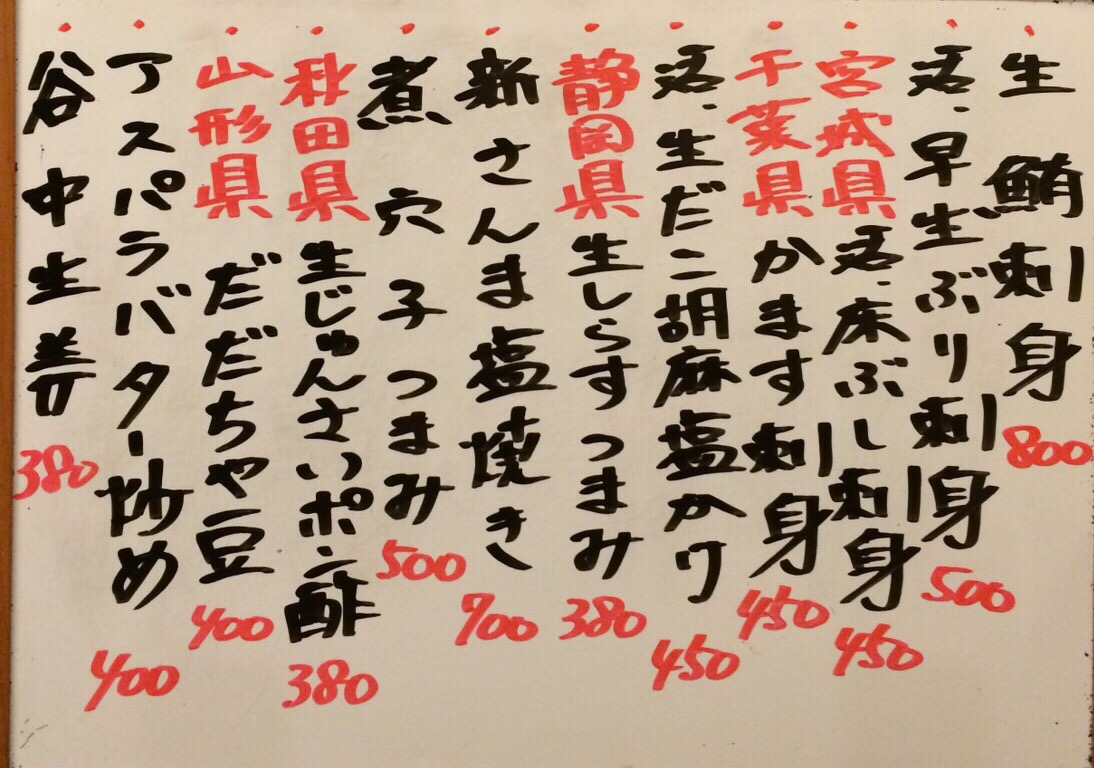 ・生鮪刺身 800
・活、早生ぶり刺身 500
・宮城県 活、床ぶし刺身 450
・千葉県 かます刺身 450
・活、生だこ胡麻塩かけ 450
・静岡県 生しらすつまみ 380
・新さんま塩焼き 700
・煮穴子つまみ 500
・秋田県 生じゅんさいポン酢 380
・山形県 だだちゃ豆 400
・アスパラバター炒め 400
・谷中生姜 380